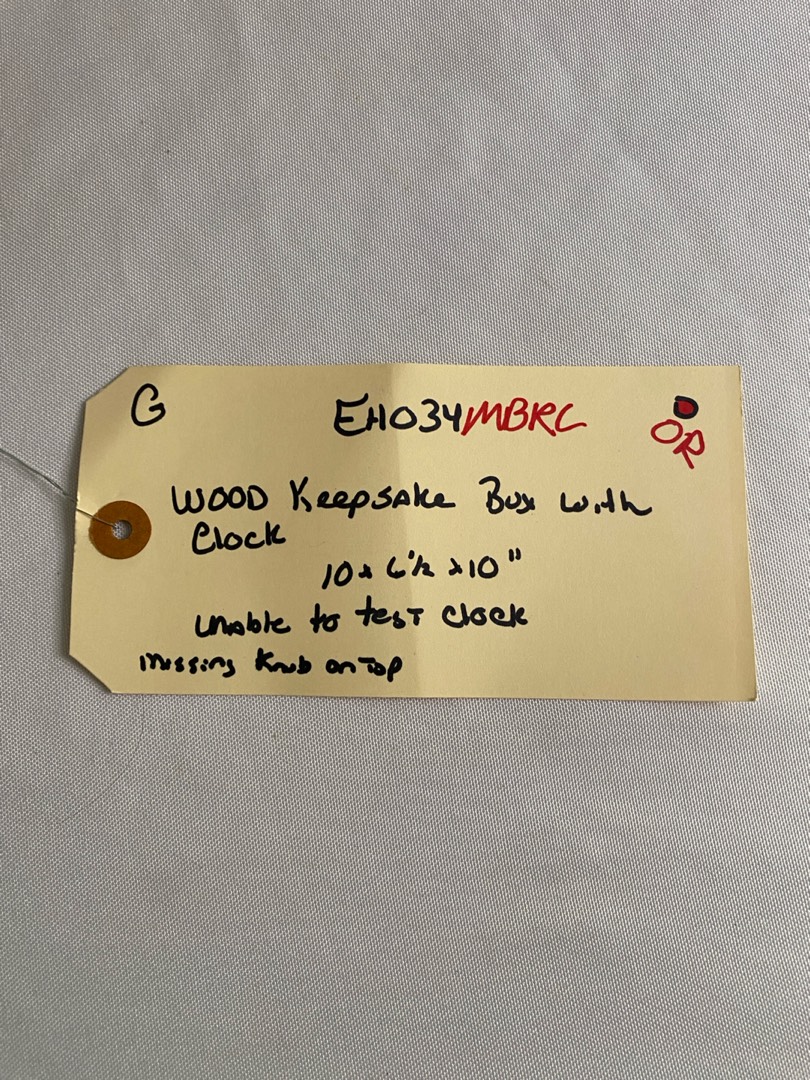 G
EH034MBRC
OR
WOOD Keepsake Box with
Clock
10 x 6 1/2 x 10"
Unable to test clock
missing Knob on Top